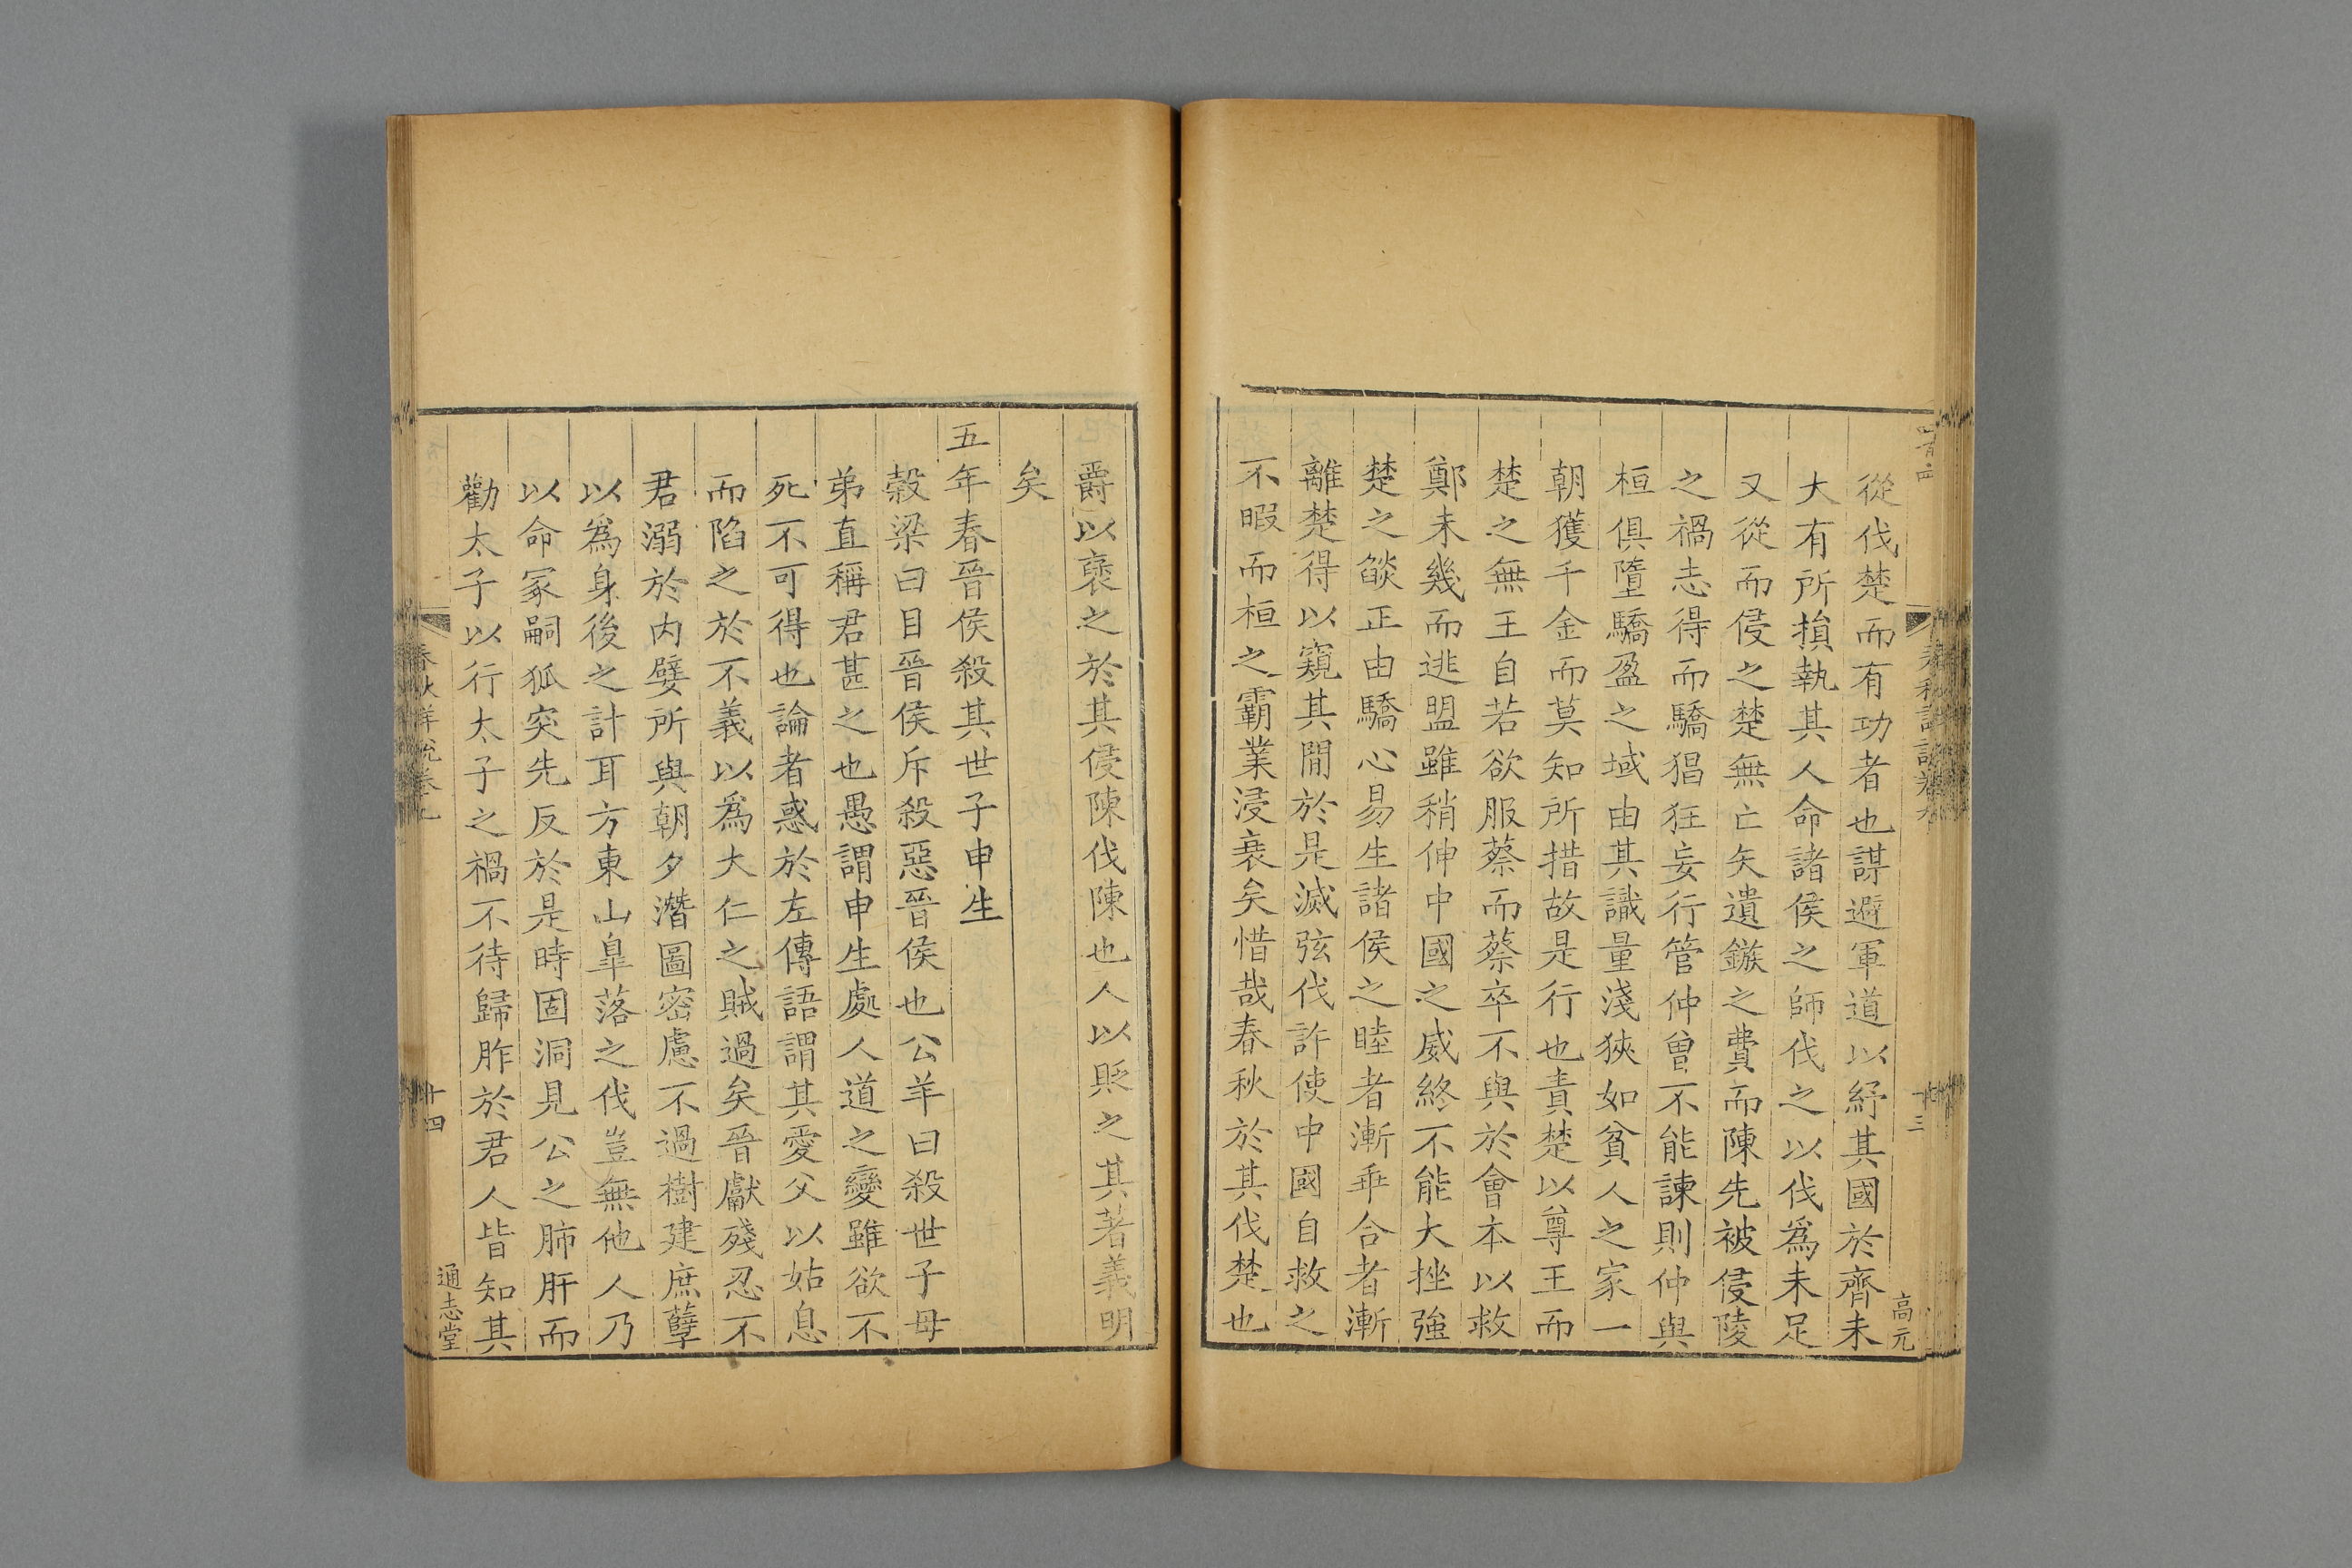 從伐楚而有功者也謀避軍道以紓其國於齊未
大有所損執其人命諸侯之師伐之以伐爲未足
又從而侵之楚無亡矢遺鏃之費而陳先被侵陵
之禍志得而驕猖狂妄行管仲曾不能諫則仲與
桓俱墮驕盈之域由其識量淺狹如貧人之家一
朝獲千金而莫知所措故是行也責楚以尊王而
楚之無王自若欲服蔡而蔡卒不與於會本以救
鄭未幾而逃盟雖稍伸中國之威終不能大挫強
楚之燄正由驕心易生諸侯之睦者漸乖合者漸
離楚得以窺其閒於是滅弦伐許使中國自救之
不暇而桓之霸業浸衰矣惜哉春秋於其伐楚也
十三
高元
爵以襃之於其侵陳伐陳也人以貶之其著義明
矣
五年春晉侯殺其世子申生
穀梁曰目晉侯斥殺惡晉侯也公羊曰殺世子母
弟直稱君甚之也愚謂申生處人道之變雖欲不
死不可得也論者惑於左傳語謂其愛父以姑息
而陷之於不義以爲大仁之賊過矣晉獻殘忍不
君溺於内嬖所與朝夕潛圖密慮不過樹建庶孽
以爲身後之計耳方東山皐落之伐豈無他人乃
以命冢嗣狐突先反於是時固洞見公之肺肝而
勸太子以行太子之禍不待歸胙於君人皆知其
春秋詳說卷九
十四
通志堂